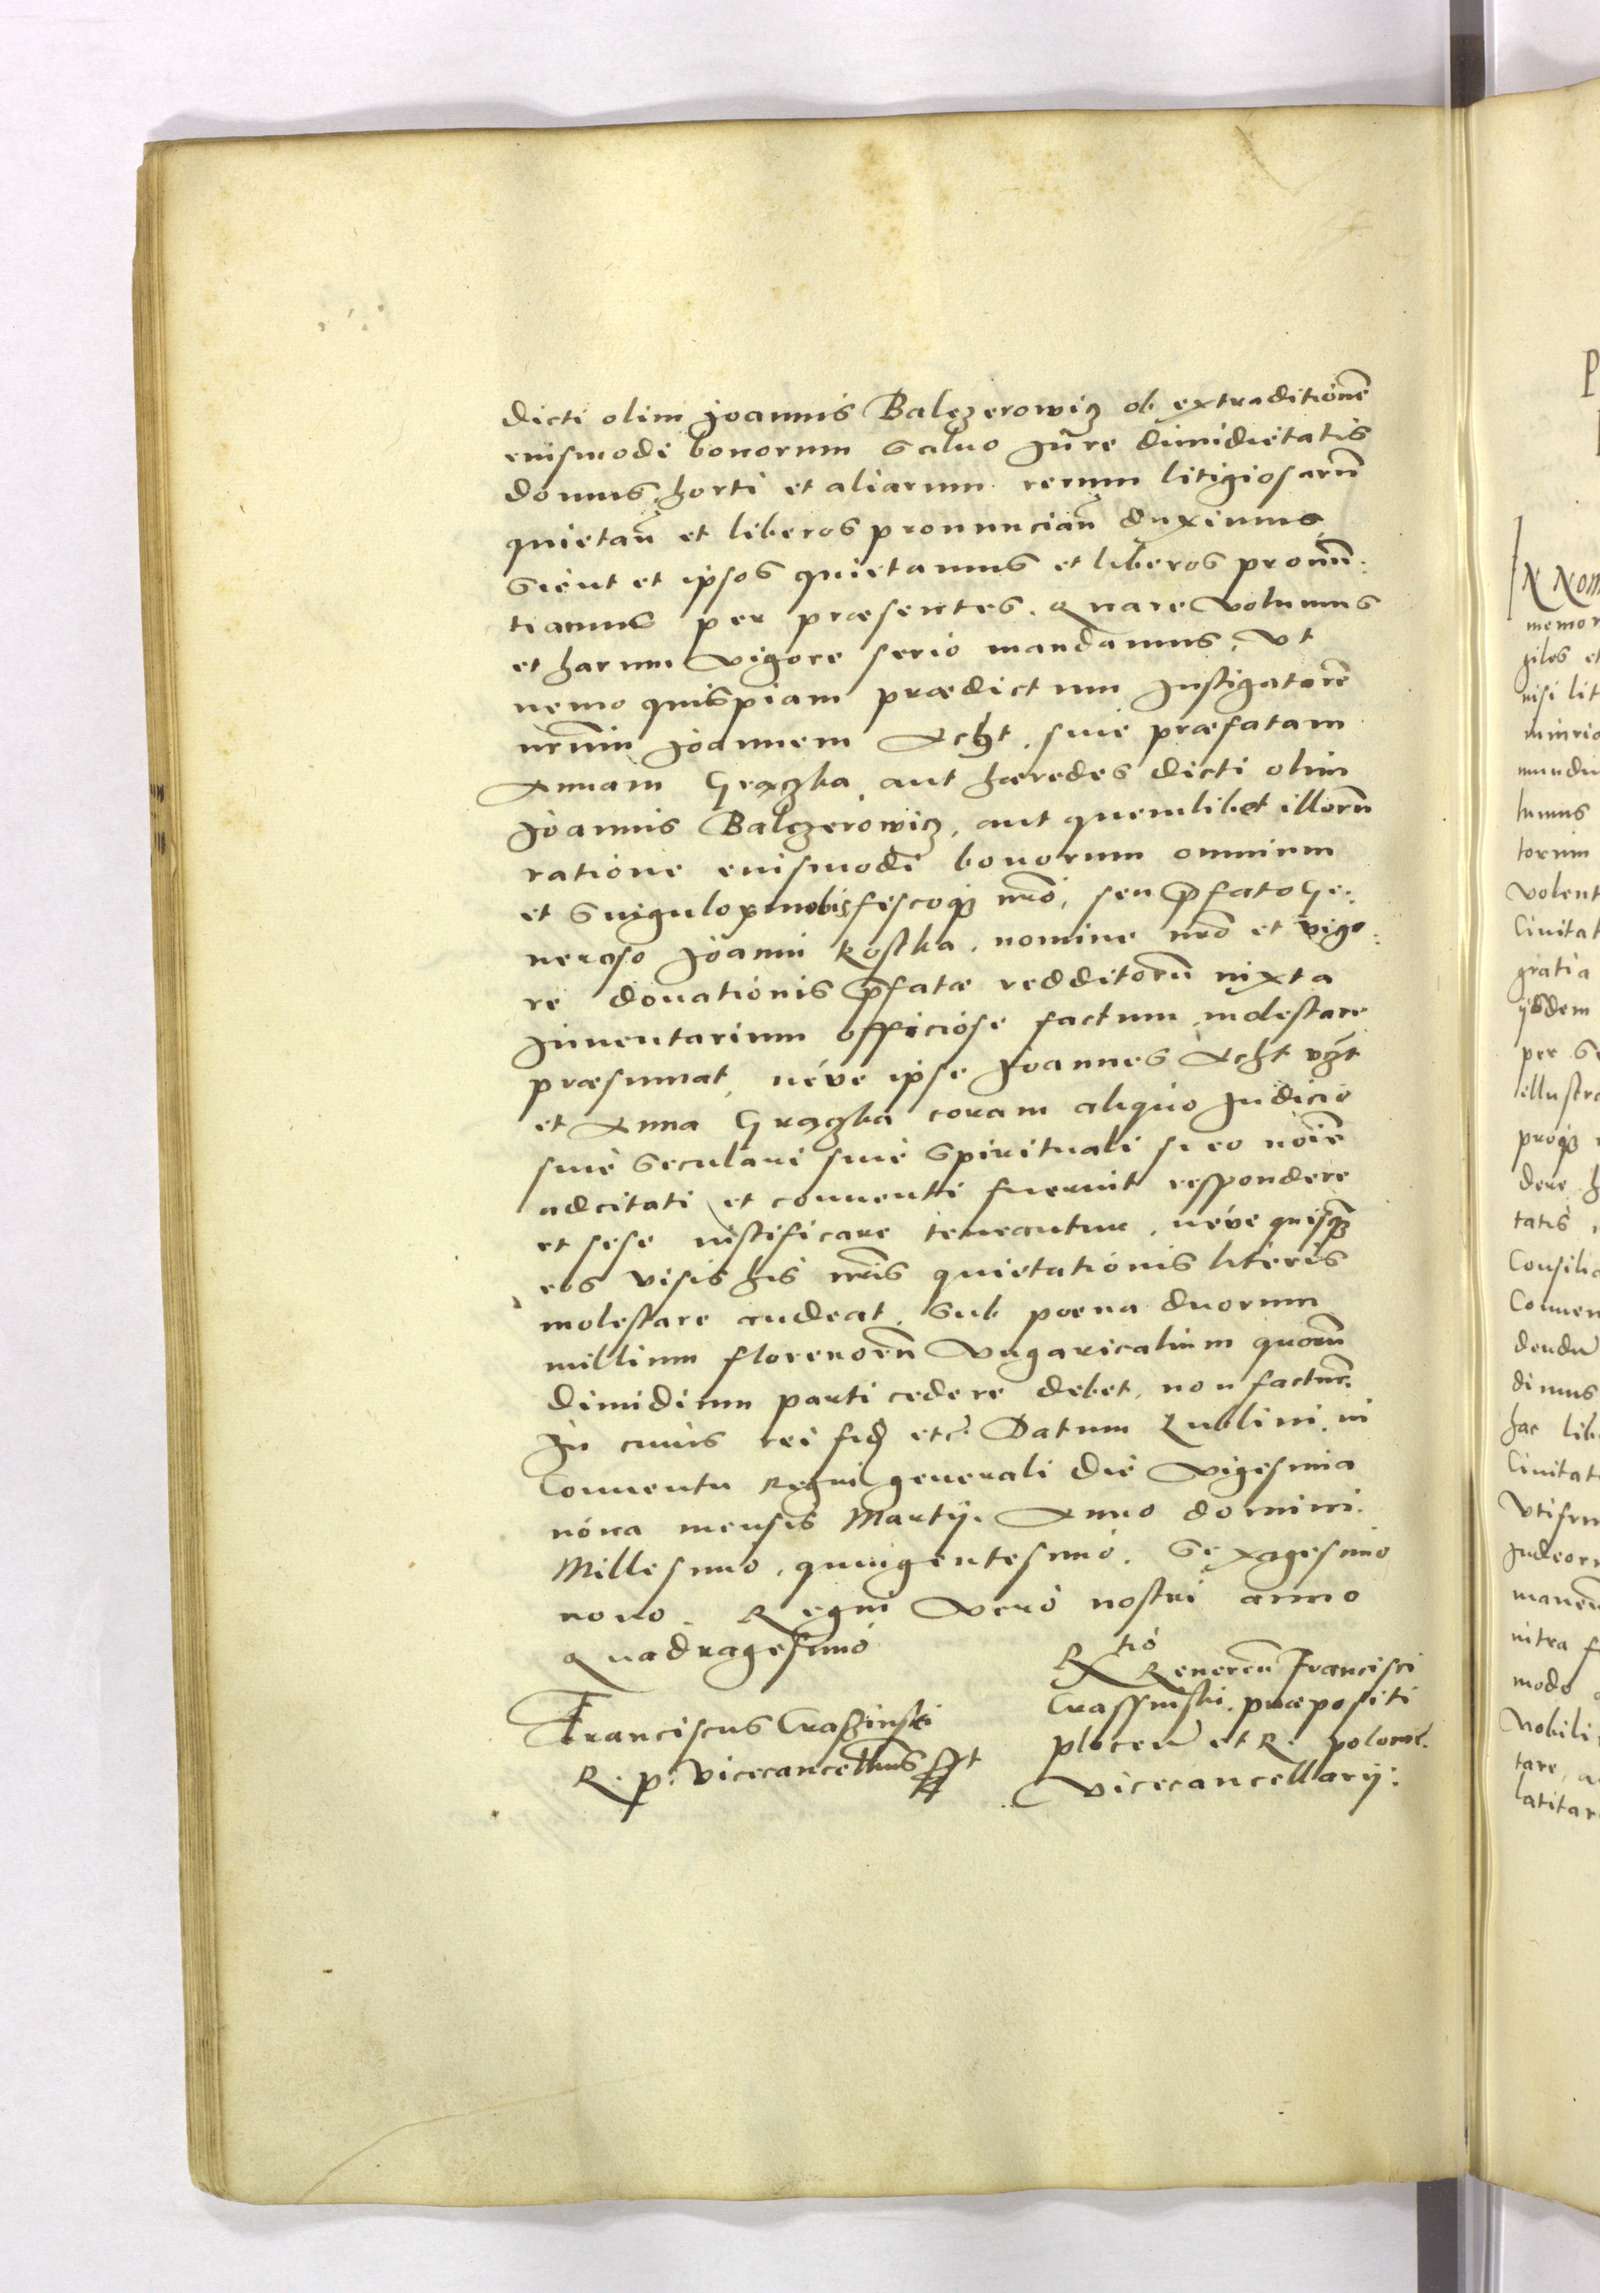 dicti olim Joannis Balczerowicz ob extraditionē
eiusmodi bonorum saluo Jure dimidietatis
domus, horti et aliarum rerum litigiosarū
quietan̄ et liberos pronuncian̄ duximus
sicut et ipsos quietamus et liberos pronūn:
tiamus per præsentes. Quare volumus
et harum vigore serio mandamus, vt
nemo quispiam prædictum Instigatorē
nr̄um Joannem Acht, siue præfatam
Annam Graczka, aut hæredes dicti olim
Joannis Balczerowicz, aut quemlibet illorū
ratione eiusmodi bonorum omnium
et singulor nobis fiscoq nr̄o, seu p̄fato Ge:
neroso Joanni Kostka, nomine nr̄o et vigo:
re donationis p̄fatæ redditorū iuxta
Inuentarium officiose factum, molestare
præsumat, néve ipse Joannes Acht
et Anna Graczka coram aliquo Judicio
siue seculari siue spirituali si eo noīe
adcitati et conuenti fuerint respondere
et sese iustificare teneantur, néve quisq
eos visis his nr̄is quietationis literis
molestare audeat, sub poena duorum
millium florenorū Vngaricalium quorū
dimidium parti cedere debet, non factur.
In cuius rei fid etc. Datum Lublini, in
Conuentu Regni generali die vigesima
nona mensis Martij. Anno domini.
Millesimo, quingentesimo. Sexagesimo
nono. Regni vero nostri anno
Quadragesimo
Franciscus Craszinski
R. p. vicecancellrius sst
Rtio Reueren̄ Francisci
Crassinski, præpositi
plocen̄ et R. poloniæ.
Vicecancellarij:
N Nom
memor
giles et
nisi lit
mundu
tumus
torum
volent
Ciuitat
gratia
ijsdem
per se
illustr
proq
dere h
tatis
Consilia
Conuen
dendū
dimus
hac lib
Ciuitat
Vtifru
Judeor
manen
intra f
modo
Nobili
tare, a
latitar